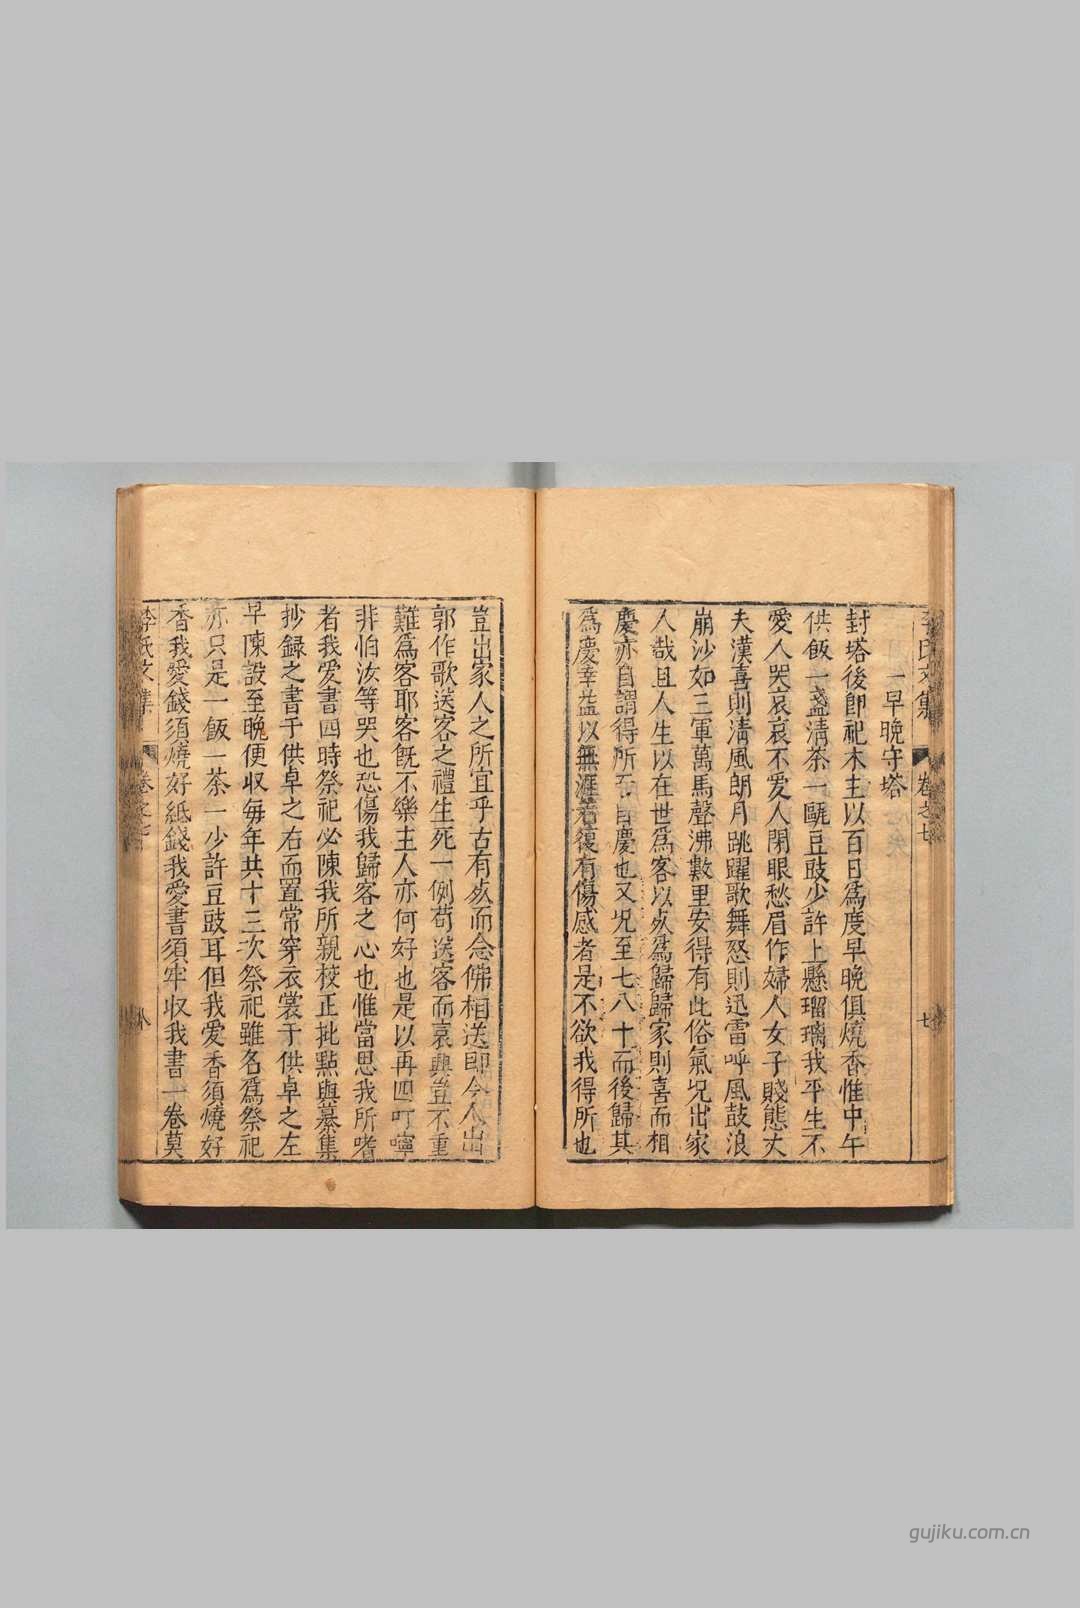 李氏文集 卷之七 七
一早晚守塔
封塔後即祀木主以百日爲度早晚俱燒香惟中午
供飯一盞清茶一甌豆豉少許上懸瑠璃我平生不
愛人哭哀哀不愛人閉眼愁眉作婦人女子賤態丈
夫漢喜則清風朗月跳躍歌舞怒則迅雷呼風鼓浪
崩沙如三軍萬馬聲沸數里安得有此俗氣况出家
人哉且人生以在世爲客以死爲歸歸家則喜而相
慶亦自謂得所而自慶也又况至七八十而後歸其
爲慶幸益以無涯若復有傷感者是不欲我得所也
豈出家人之所宜乎古有死而念佛相送即今人出
郭作歌送客之禮生死一例苟送客而哀興豈不重
難爲客耶客既不樂主人亦何好也是以再四叮嚀
非怕汝等哭也恐傷我歸客之心也惟當思我所嗜
者我愛書四時祭祀必陳我所親校正批點與纂集
抄録之書于供卓之右而置常穿衣裳于供卓之左
早陳設至晚便収每年共十三次祭祀雖名爲祭祀
亦只是一飯一茶一少許豆豉耳但我愛香須燒好
香我愛錢須燒好紙錢我愛書須牢収我書一卷莫
李氏文集 卷之七 八
gujiku.com.cn